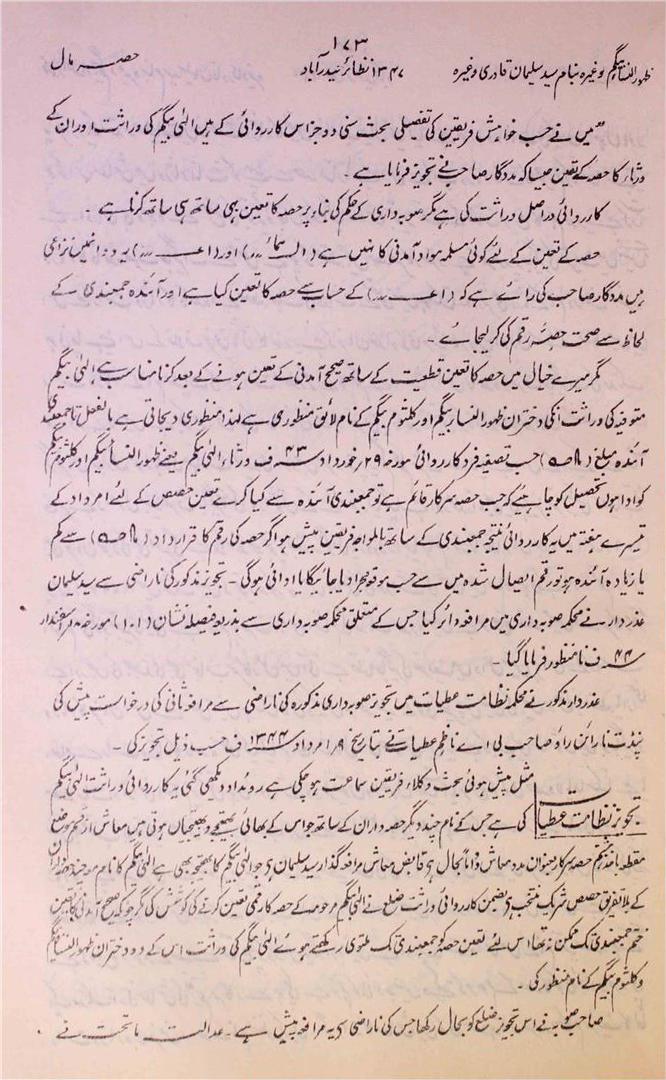 ۱۷۳
ظہور النسا بیگم وغیرہ بنام سید سلیمان قادری وغیرہ ۱۳۴۷ نظائر حیدرآباد حصہ مال
"میں نے حسب خواہش فریقین کی تفصیلی بحث سنی دو جز اس کارروائی کے ہیں الٰہی بیگم کی وراثت اور ان کے
ورثاء کا حصہ کے تعین جیسا کہ مددگار صاحب نے تجویز فرمایا ہے۔
کارروائی دراصل وراثت کی ہے مگر صوبہ داری کے حکم کی بناء پر حصہ کا تعین بھی ساتھ ہی ساتھ کرنا ہے
حصہ کے تعین کے لئے کوئی مسلمہ مواد آمدنی کا نہیں ہے اور یہ دو
ہیں مددگار صاحب کی رائے ہے کہ کے حساب سے حصہ کا تعین کیا ہے اور آئندہ جمعبندی کے
لحاظ سے صحت حصہ رقم کی کر لیجائے۔
مگر میرے خیال میں حصہ کا تعین قطعیت کے ساتھ صحیح آمدنی کے تعین ہونے کے بعد کرنا مناسب ہے الٰہی بیگم
متوفیہ کی وراثت انکی دختران ظہور النسا بیگم اور کلثوم بیگم کے نام لائق منظوری ہے لہذا منظوری دیجاتی ہے بالفعل تا جمعبندی
آئندہ مبلغ حسب تصفیہ فرد کارروائی مورخہ ۲۹ خورداد ۴۳ ف ورثاء الٰہی بیگم یعنے ظہور النسا بیگم اور کلثوم بیگم
کو ادا ہوں تحصیل کو چاہیے کہ جب حصہ سرکار قائم ہے تو جمعبندی آئندہ سے کیا کرے تعین حصص کے لئے امرداد کے
تیسرے ہفتہ میں یہ کارروائی نتیجہ جمعبندی کے ساتھ بالمواجہ فریقین پیش ہو اگر حصہ کی رقم کا قرارداد سے کم
یا زیادہ آئندہ ہو تو رقم ایصال شدہ میں سے حسب موقعہ مجرا دیا جائیگا یا ادائی ہوگی۔ تجویز مذکور کی ناراضی سے سید سلیمان
عذردار نے محکمہ صوبہ داری میں مرافعہ دائر کیا جس کے متعلق محکمہ صوبہ داری سے بذریعہ فیصلہ نشان (۱۰۱) مورخہ اسفندار
۴۴ ف نامنظور فرمایا گیا۔
عذردار مذکور نے محکمہ نظامت عطیات میں تجویز صوبہ داری مذکورہ کی ناراضی سے مرافعہ ثانی کی درخواست پیش کی
پنڈت نارائن راؤ صاحب بی اے ناظم عطیات نے بتاریخ ۱۹ امرداد ۱۳۴۴ ف حسب ذیل تجویز کی۔
مثل پیش ہوئی بحث وکلاء فریقین سماعت ہو چکی ہے روئداد دیکھی گئی یہ کارروائی وراثت الٰہی بیگم
تجویز نظامت عطیات کی ہے جس کے نام چند دیگر حصہ داران کے ساتھ جو اس کے بھائی بھتیجے و بھتیجیاں ہوتی ہیں معاش از قسم موضع
مقطعہ باخذ پنجم حصہ سرکار بعنوان مدد معاش دواماً بحال ہے قابض معاش مرافعہ گذار سید سلیمان ہے جو الٰہی بیگم کا بھتیجہ بھی ہے الٰہی بیگم کا نام موجودہ حصہ داران
کے بلا تفریق حصص شریک منتخب ہے بضمن کارروائی وراثت ضلع نے الٰہی بیگم مرحومہ کے حصہ کا رقمی تعین کرنے کی کوشش کی مگر چونکہ صحیح آمدنی کا تعین
ختم جمعبندی تک ممکن نہ تھا اس لئے تعین حصہ کو جمعبندی تک ملتوی رکھتے ہوئے الٰہی بیگم کی وراثت اس کے دو دختران ظہور النسا بیگم
و کلثوم بیگم کے نام منظور کی۔
صاحب صوبہ نے اس تجویز ضلع کو بحال رکھا جس کی ناراضی سے یہ مرافعہ پیش ہے۔ عدالت ماتحت نے